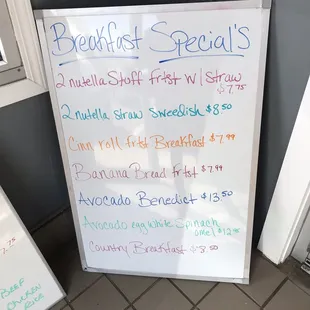 Breakfast Special's
2 nutella Stoff frtst w/ straw
$7.75
2 nutella straw Sweedish $8.50
Cinn roll frtst Breakfast $7.99
Banana Bread frtst $7.99
Avocado Benedict $13.50
Avocado egg white Spinach
omel $12.75
Country Breakfast $8.50
7.75
Beef
Chicken